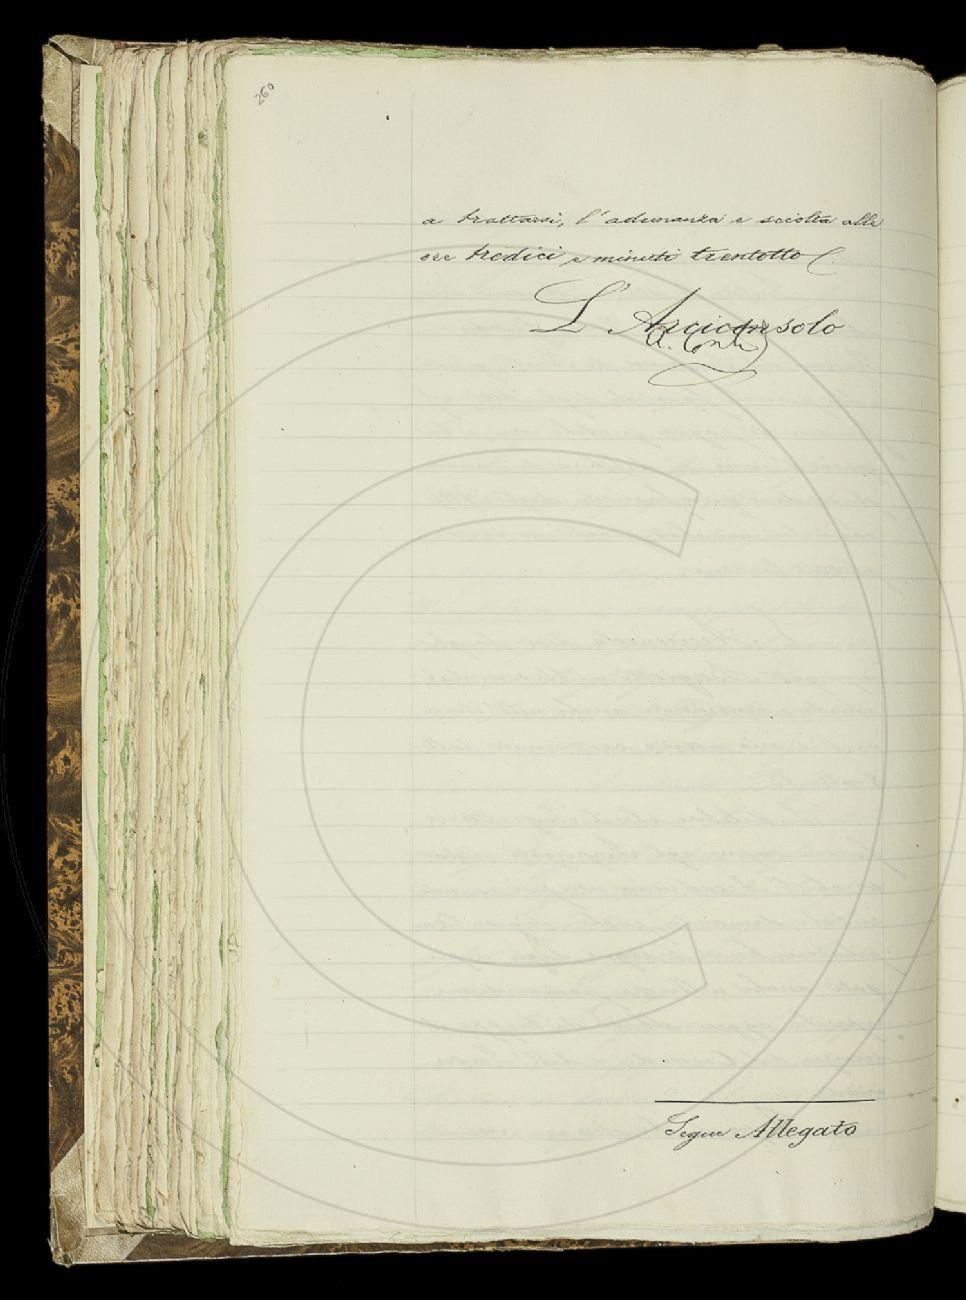 260
a trattarsi, l'adunanza è sciolta alle
ore tredici e minuti trentotto
L'Arciconsolo
A. Conti
Segue Allegato